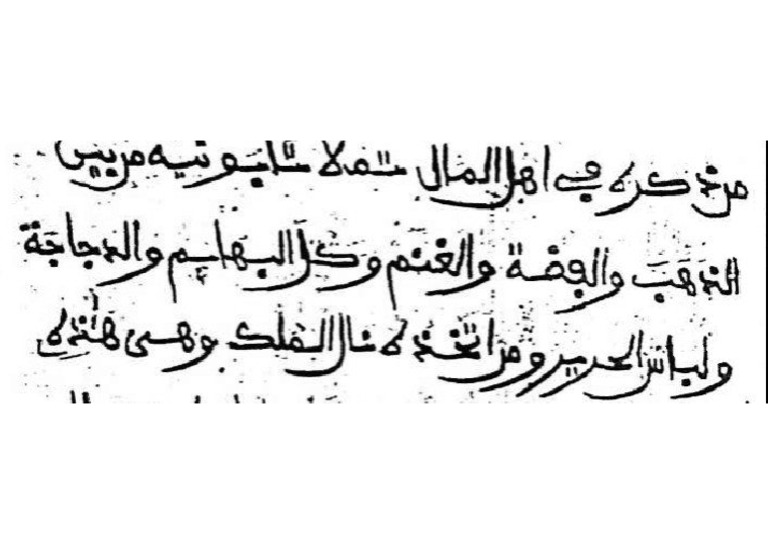 من ذكره في اهل المال شملا شا يوتيه من يشا
الذهب والفضة والغنم وكل البهايم والدجاجة
ولباس الحرير ومن اتخذه نال الملك وهي هذه